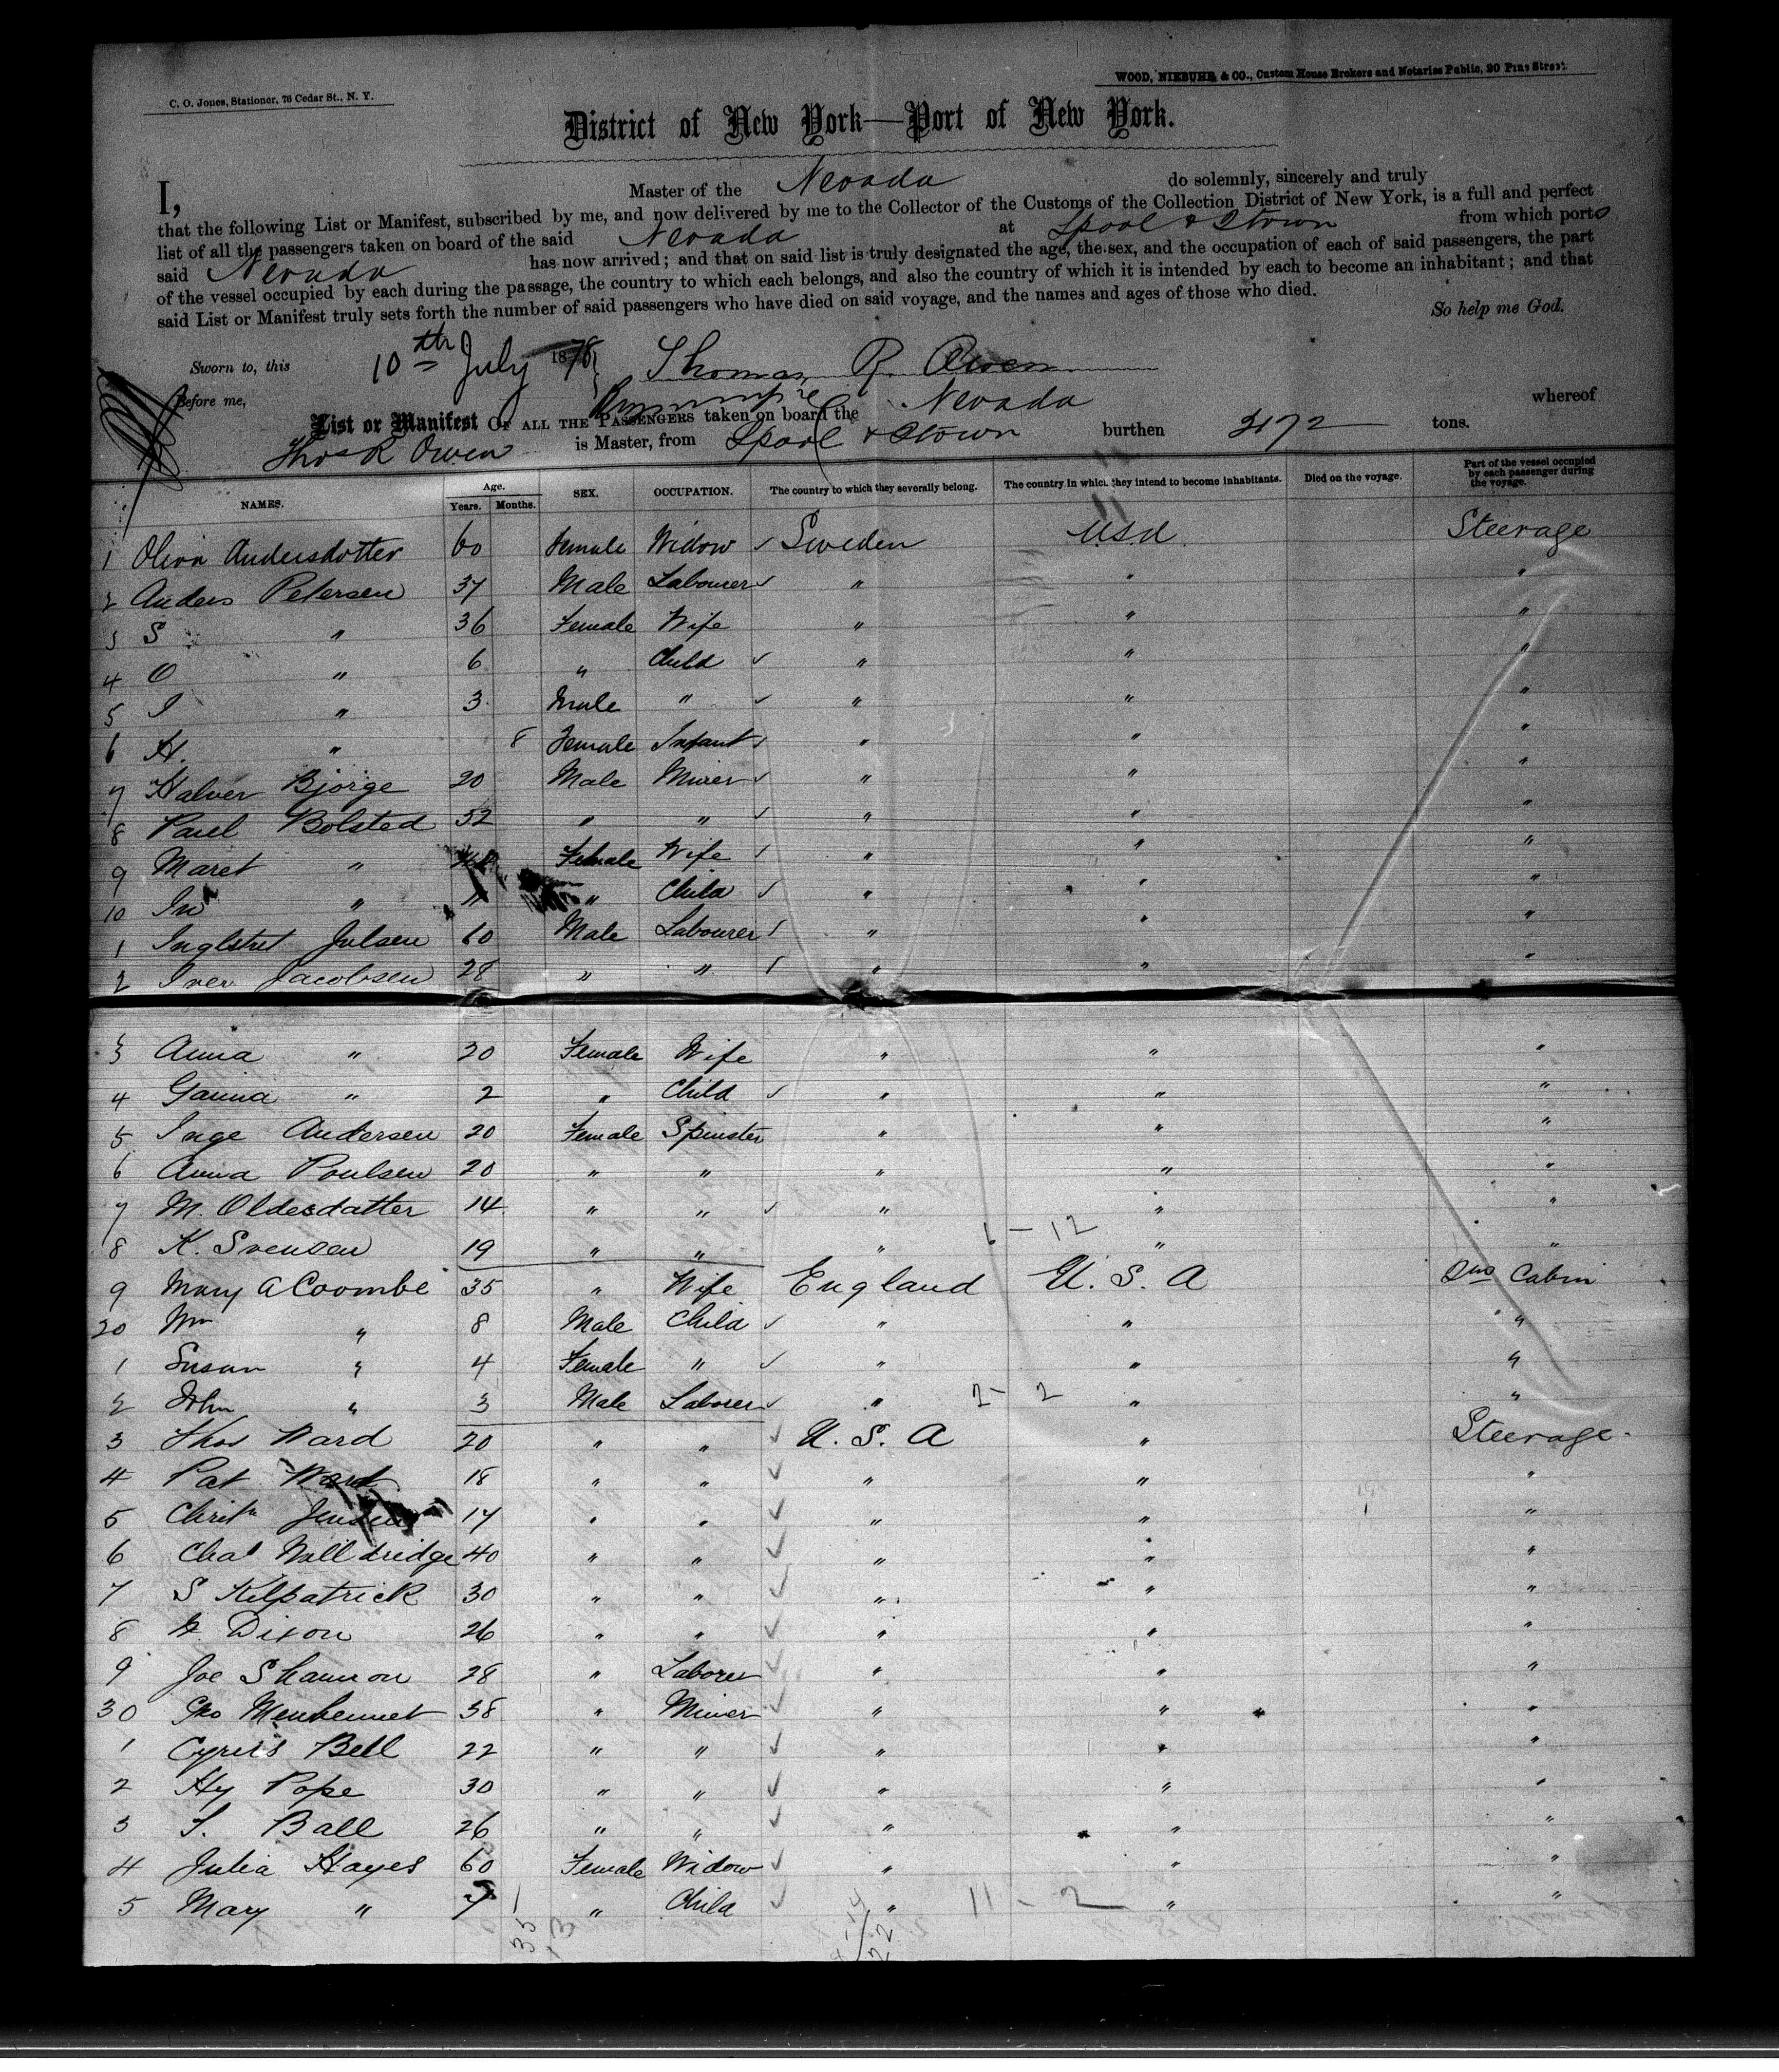 C. O. Jones, Stationer, 76 Cedar St., N. Y.
WOOD, NIEBUHR & CO., Custom House Brokers and Notaries Public, 20 Pine Street.
District of New York—Port of New York.
I, Master of the Nevada do solemnly, sincerely and truly
that the following List or Manifest, subscribed by me, and now delivered by me to the Collector of the Customs of the Collection District of New York, is a full and perfect
list of all the passengers taken on board of the said Nevada at Lpool & Qtown from which ports
said Nevada has now arrived; and that on said list is truly designated the age, the sex, and the occupation of each of said passengers, the part
of the vessel occupied by each during the passage, the country to which each belongs, and also the country of which it is intended by each to become an inhabitant; and that
said List or Manifest truly sets forth the number of said passengers who have died on said voyage, and the names and ages of those who died.
So help me God.
Sworn to, this 10th July 1878 Thomas R. Owen
Before me,
List or Manifest OF ALL THE PASSENGERS taken on board the Nevada whereof
Thos R Owen is Master, from Lpool & Qtown burthen 3172 tons.
NAMES. Age. Years. Months. SEX. OCCUPATION. The country to which they severally belong. The country in which they intend to become inhabitants. Died on the voyage. Part of the vessel occupied by each passenger during the voyage.
1 Olivia Andersdotter 60 Female Widow ✓ Sweden USA Steerage
2 Anders Petersen 37 Male Labourer ✓ " " "
3 S " 36 Female Wife " " "
4 O " 6 " Child ✓ " " "
5 I " 3 Male " ✓ " " "
6 H. " 8 Female Infant ✓ " " "
7 Halver Bjorge 20 Male Miner ✓ " " "
8 Paul Bolsted 52 " " ✓ " " "
9 Maret " Female Wife ✓ " " "
10 In " 11 " Child ✓ " " "
1 Inglstret Julsen 60 Male Labourer ✓ " " "
2 Iver Jacobsen 28 " " ✓ " " "
3 Anna " 20 Female Wife " " "
4 Ganna " 2 " Child ✓ " " "
5 Inge Andersen 20 Female Spinster " " "
6 Anna Poulsen 20 " " " " "
7 M. Oldesdatter 14 " " ✓ " " "
8 K. Svensen 19 " " " 6 - 12 " "
9 Mary A Coombe 35 " Wife England U. S. A 2nd Cabin
20 Wm " 8 Male Child ✓ " " "
1 Susan " 4 Female " ✓ " " "
2 John " 3 Male Laborer ✓ " 2 - 2 " "
3 Thos Ward 20 " " ✓ U. S. A " Steerage
4 Pat Ward 18 " " ✓ " " "
5 Christn Jensen 17 " " ✓ " " "
6 Chas Walldridge 40 " " ✓ " " "
7 S Kilpatrick 30 " " ✓ " " "
8 Dixon 26 " " ✓ " " "
9 Joe Shannon 28 " Laborer ✓ " " "
30 Geo Menhennet 38 " Miner ✓ " " "
1 Cyrus Bell 22 " " ✓ " " "
2 Hy Pope 30 " " ✓ " " "
3 S. Ball 26 " " ✓ " " "
4 Julia Hayes 60 Female Widow ✓ " " "
5 Mary " 7 " Child ✓ " 11 - 2 " "
35
13
22